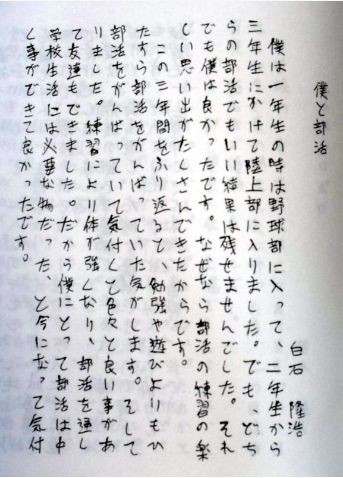 僕と部活
白石 隆浩
僕は一年生の時は野球部に入って、二年生から
三年生にかけて陸上部に入りました。でも、どち
らの部活でもいい結果は残せませんでした。それ
でも僕は良かったです。なぜなら部活の練習の楽
しい思い出がたくさんできたからです。
この三年間をふり返ると、勉強や遊びよりもひ
たすら部活をがんばっていた気がします。そして
部活をがんばっていて気付くと色々と良い事があ
りました。練習により体が強くなり、部活を通し
て友達もできました。だから僕にとって部活は中
学校生活には必要な物だった、と今になって気付
く事ができて良かったです。